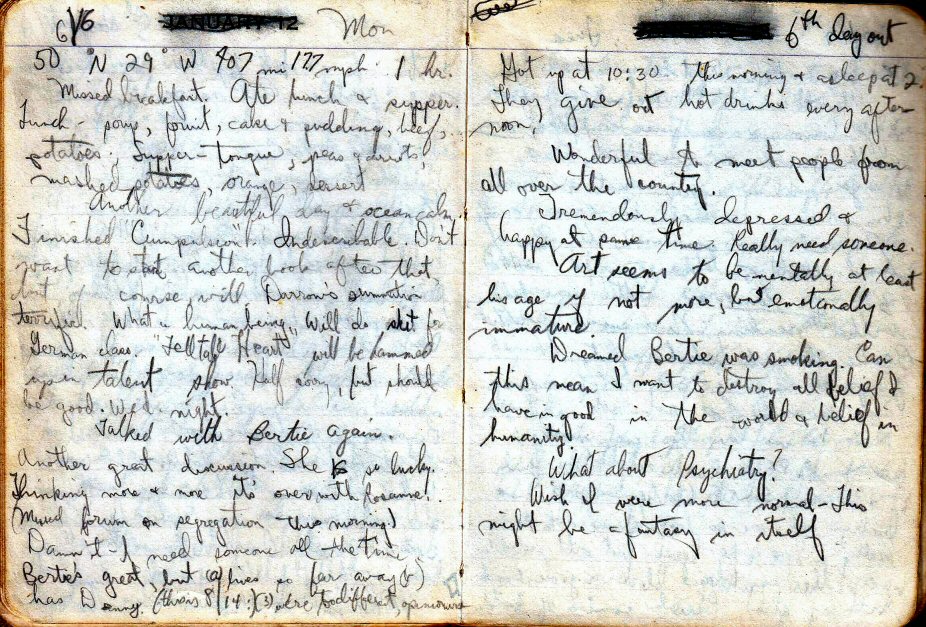 6/16 JANUARY 12 Mon
50 °N 29° W 407 mi 17 mph. 1 hr.
Missed breakfast. Ate lunch & supper.
Lunch - soup, fruit, cake & pudding, beef,
potatoes; Supper - tongue, peas & carrots,
mashed potatoes, orange, desert
Another beautiful day & ocean calm.
Finished "Compulsion". Indescribable. Don't
want to start another book after that,
but of course, will. Darrow's summation
terrific. What a human being. Will do skit for
German class. "Tell tale Heart" will be hammed
up in talent show. Half corny, but should
be good. Wed. night.
Talked with Bertie again.
Another great discussion. She is so lucky.
Thinking more & more it's over with Rosanne.
(Missed forum on segregation this morning)
Damn it - I need someone all the time
Bertie's great, but (a) lives so far away (b)
has Danny (this is 8/14:) (3) we're too different, opinionwise
6th day out
Got up at 10:30 this morning & asleep at 2.
They give out hot drinks every after-
noon.
Wonderful to meet people from
all over the country.
Tremendously depressed &
happy at same time. Really need someone.
Art seems to be mentally at least
his age if not more, but emotionally
immature
Dreamed Bertie was smoking. Can
this mean I want to destroy all belief I
have in good in the world & belief in
humanity
What about Psychiatry?
Wish I were more normal - This
might be a fantasy in itself